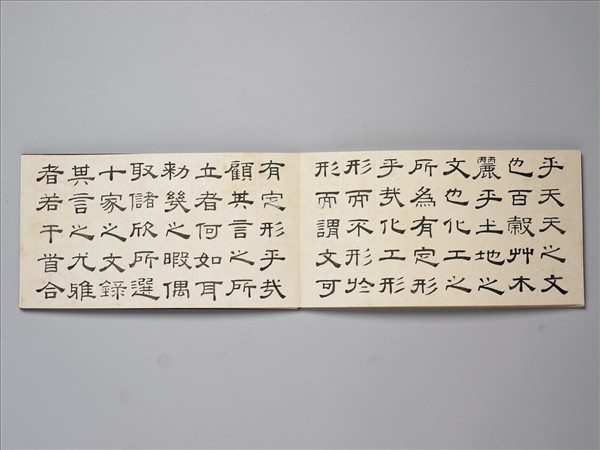 乎天天之文
也百穀艸木
麗乎土地之
文也化工之
所為有定形
乎哉化工形
形而不形於
形而謂文可
有定形乎哉
顧其言之所
立者何如耳
勑幾之暇偶
取儲欣所選
十家之文錄
其言之尤雅
者若干首合